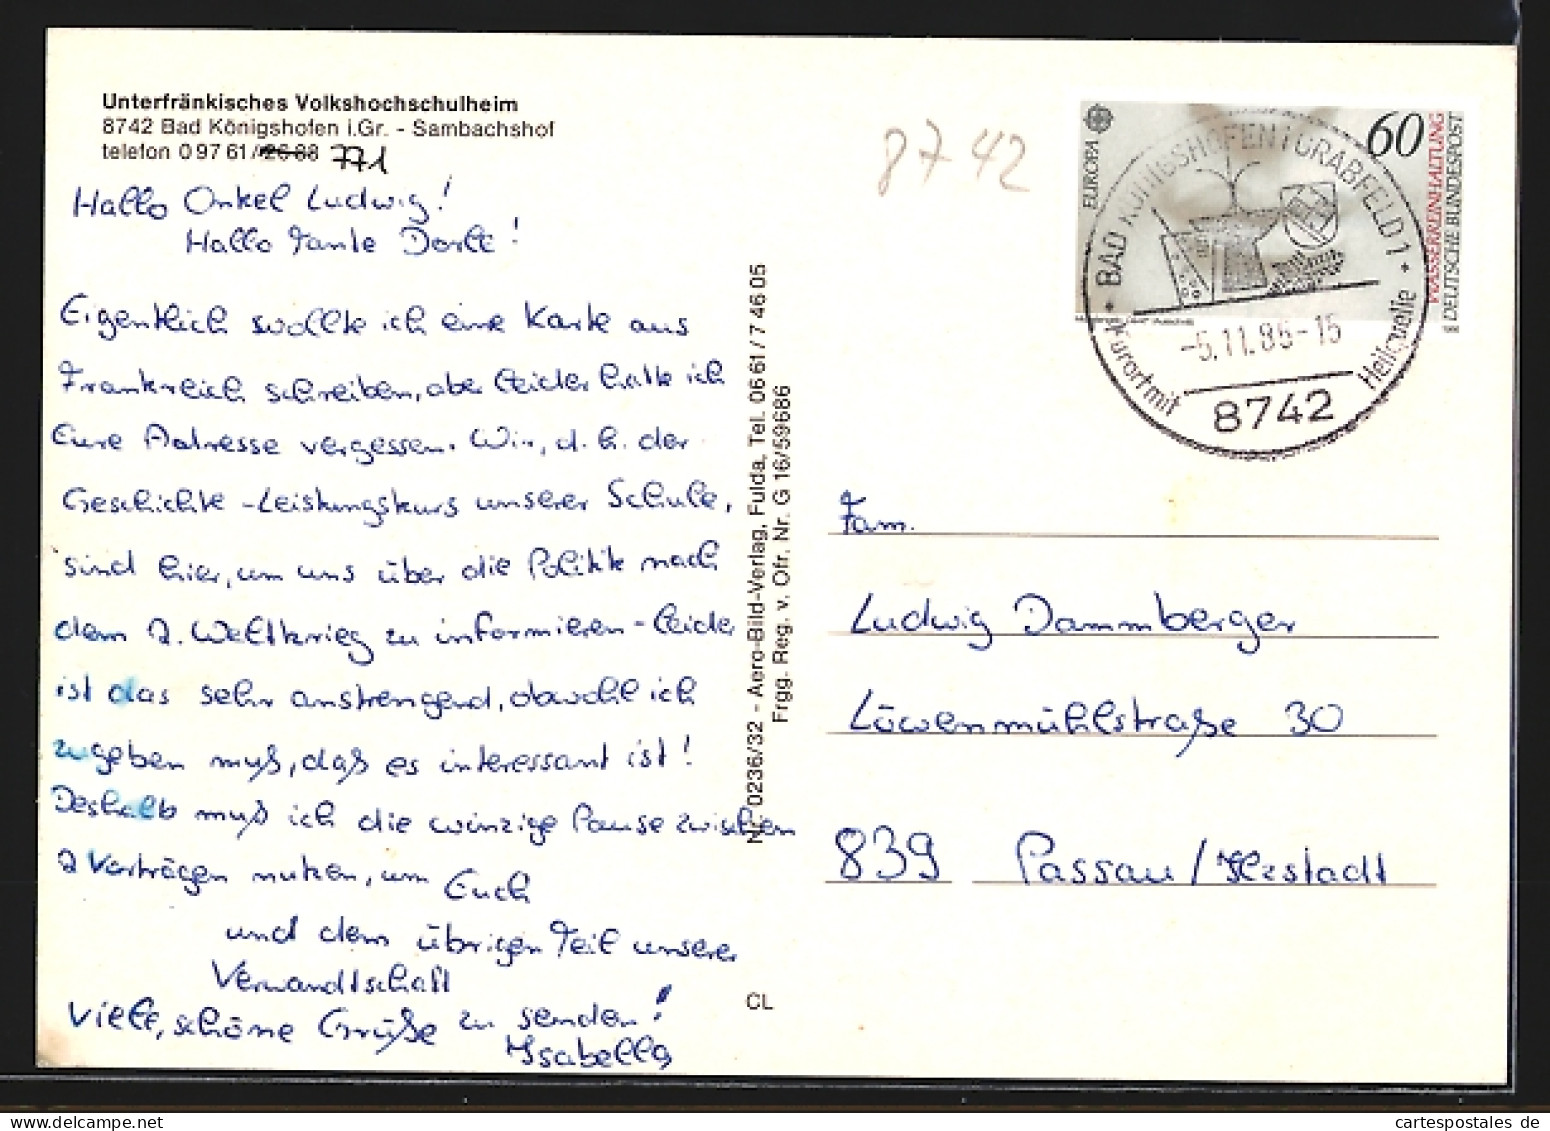 Unterfränkisches Volkshochschulheim
8742 Bad Königshofen i.Gr. - Sambachshof
telefon 0 97 61/2688 771
Hallo Onkel Ludwig!
Hallo Tante Dorle!
Eigentlich wollte ich eine Karte aus
Frankreich schreiben, aber leider hatte ich
Eure Adresse vergessen. Wir, d.h. der
Geschichte-Leistungskurs unserer Schule,
sind hier, um uns über die Politik nach
dem 2. Weltkrieg zu informieren - leider
ist das sehr anstrengend, obwohl ich
zugeben muß, daß es interessant ist!
Deshalb muß ich die winzige Pause zwischen
2 Vorträgen nutzen, um Euch
und dem übrigen Teil unserer
Verwandtschaft
viele, schöne Grüße zu senden!
Isabella
Nr. 0236/32 - Aero-Bild-Verlag, Fulda, Tel. 06 61 / 7 46 05
Frgg. Reg. v. Ofr. Nr. G 16/59686
CL
8742
EUROPA
60
WASSERREINHALTUNG
DEUTSCHE BUNDESPOST
BAD KÖNIGSHOFEN I GRABFELD 1
-5.11.86-15
Kurort mit Heilquelle
8742
Fam.
Ludwig Dammberger
Löwenmühlstraße 30
839 Passau/Ilzstadt
www.cartespostales.de